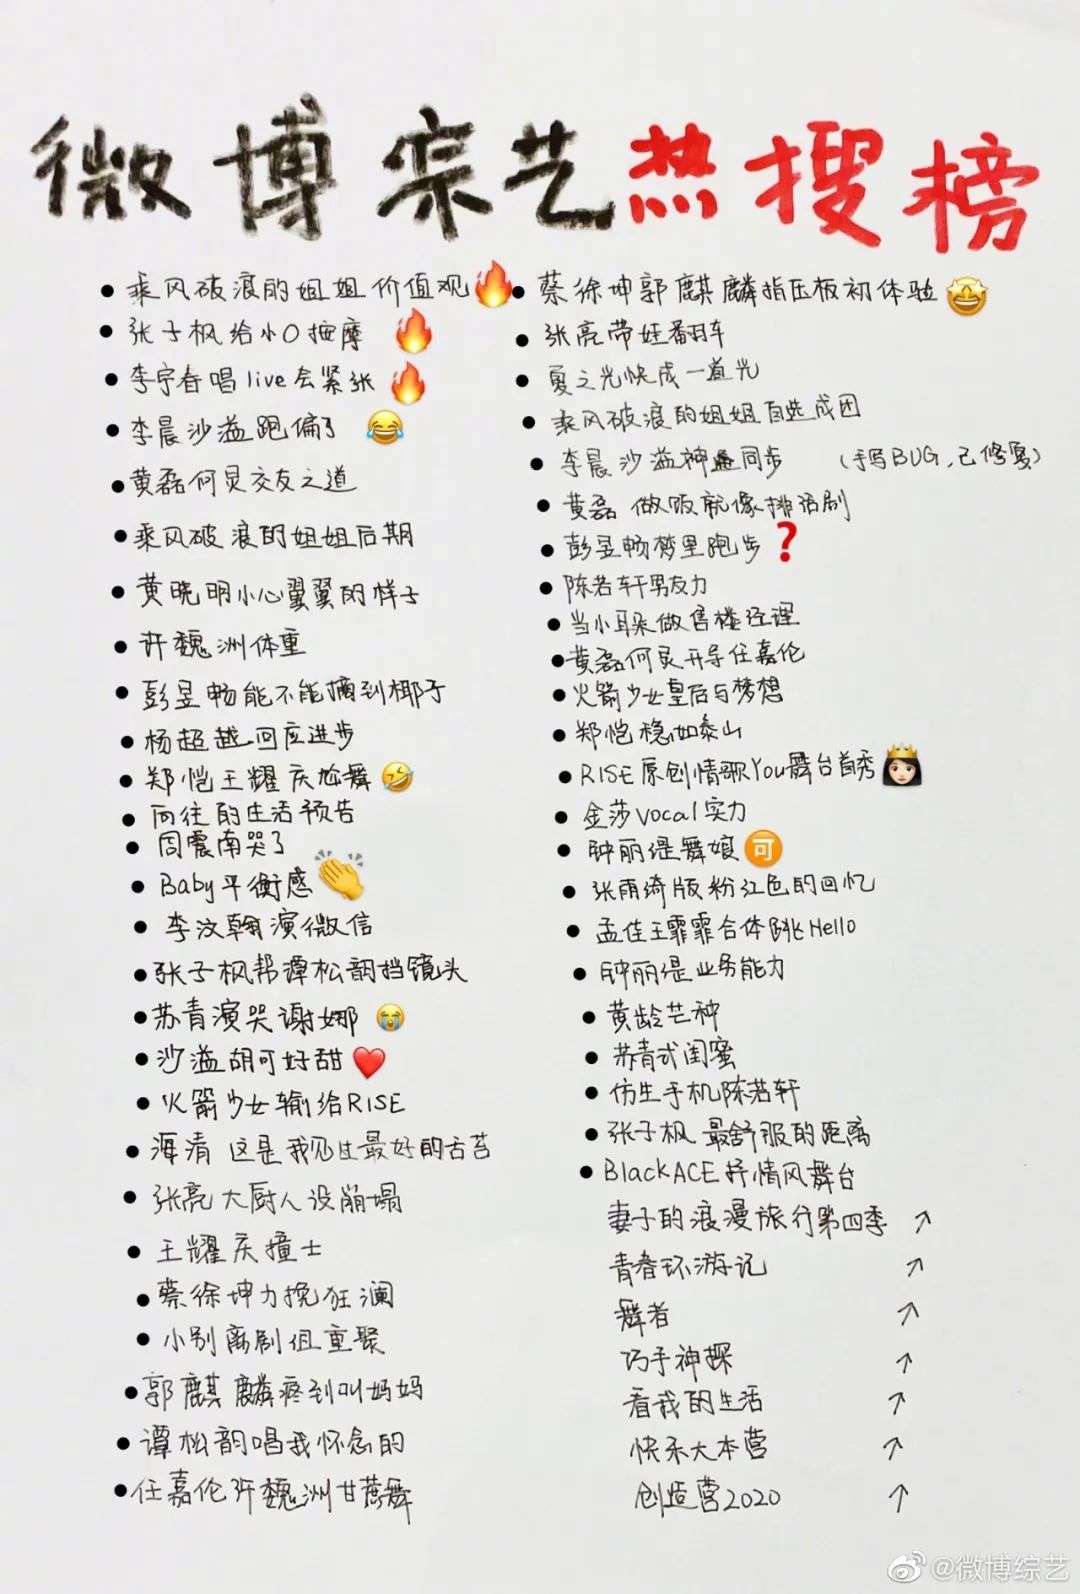 微博综艺热搜榜
乘风破浪的姐姐价值观🔥
张子枫给小O按摩🔥
李宇春唱live会紧张🔥
李晨沙溢跑偏了😂
黄磊何炅交友之道
乘风破浪的姐姐后期
黄晓明小心翼翼的样子
许魏洲体重
彭昱畅能不能摘到椰子
杨超越回应进步
郑恺王耀庆尬舞🤣
向往的生活预告
周震南哭了
Baby平衡感👏
李汶翰演微信
张子枫帮谭松韵挡镜头
苏青演哭谢娜😭
沙溢胡可好甜❤️
火箭少女输给RISE
海清 这是我见过最好的舌苔
张亮大厨人设崩塌
王耀庆撞士
蔡徐坤力挽狂澜
小别离剧组重聚
郭麒麟疼到叫妈妈
谭松韵唱我怀念的
任嘉伦许魏洲甘蔗舞
蔡徐坤郭麒麟指压板初体验🤩
张亮带妊翻车
夏之光快成一道光
乘风破浪的姐姐自选成团
李晨沙溢神同步 (手写BUG,已修复)
黄磊 做饭就像排话剧
彭昱畅梦里跑步❓
陈若轩男友力
当小朵做售楼经理
黄磊何炅开导任嘉伦
火箭少女皇后与梦想
郑恺稳如泰山
RISE原创情歌You舞台首秀👸
金莎vocal实力
钟丽缇舞娘🉑
张雨绮版粉红色的回忆
孟佳王霏霏合体跳Hello
钟丽缇业务能力
黄龄芒种
苏青式闺蜜
仿生手机陈若轩
张子枫 最舒服的距离
BlackACE抒情风舞台
妻子的浪漫旅行第四季 ↗
青春环游记 ↗
舞者 ↗
巧手神探 ↗
看我的生活 ↗
快乐大本营 ↗
创造营2020 ↗
@微博综艺